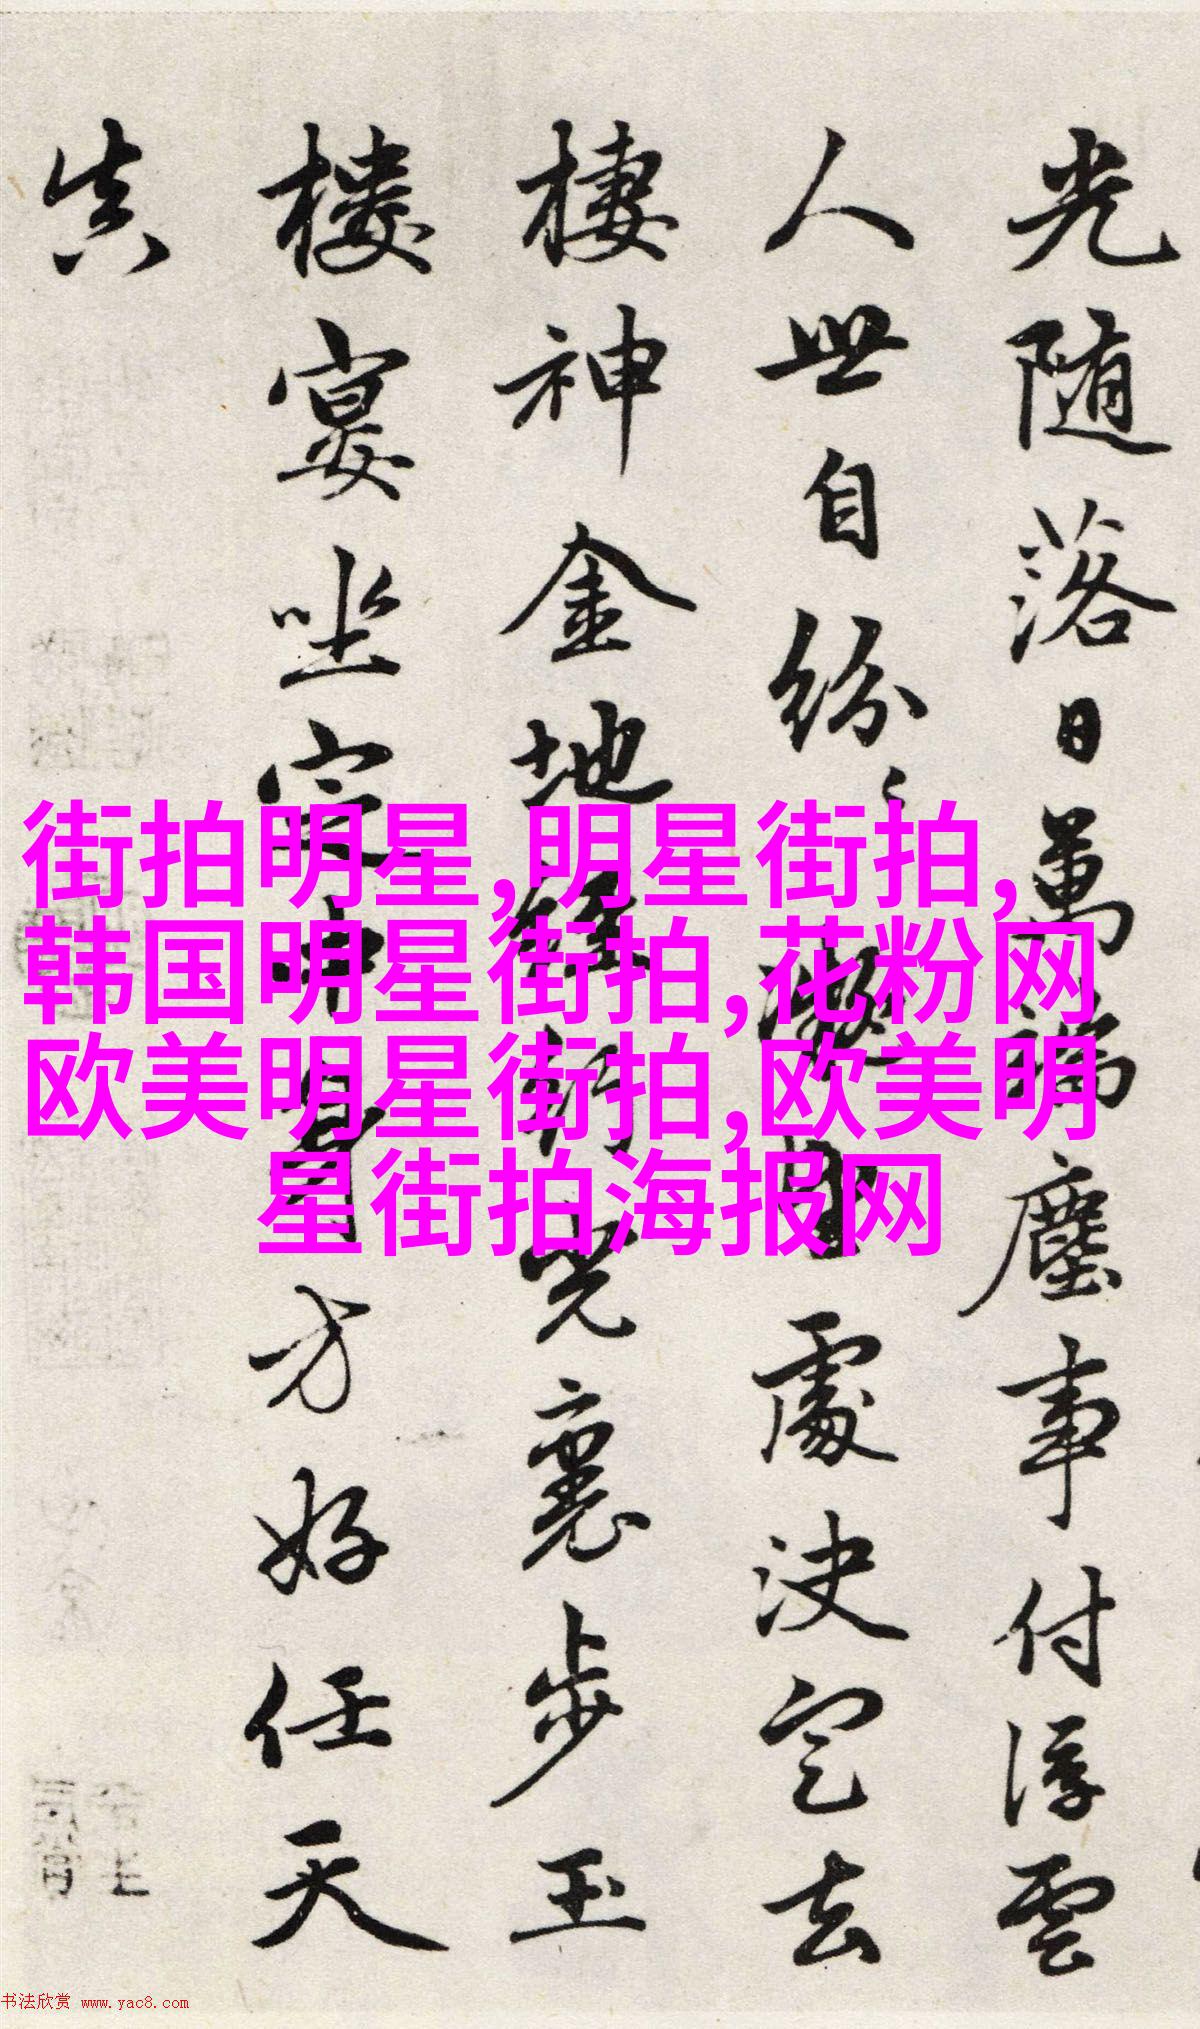 光随落日萬端塵事付浮雲
人世自紛々處決定去
棲神金地經行光裏步玉
樓宴坐定中身方好任天
真
街拍明星,明星街拍,
韩国明星街拍,花粉网
欧美明星街拍,欧美明
星街拍海报网
书法欣赏 www.yac8.com